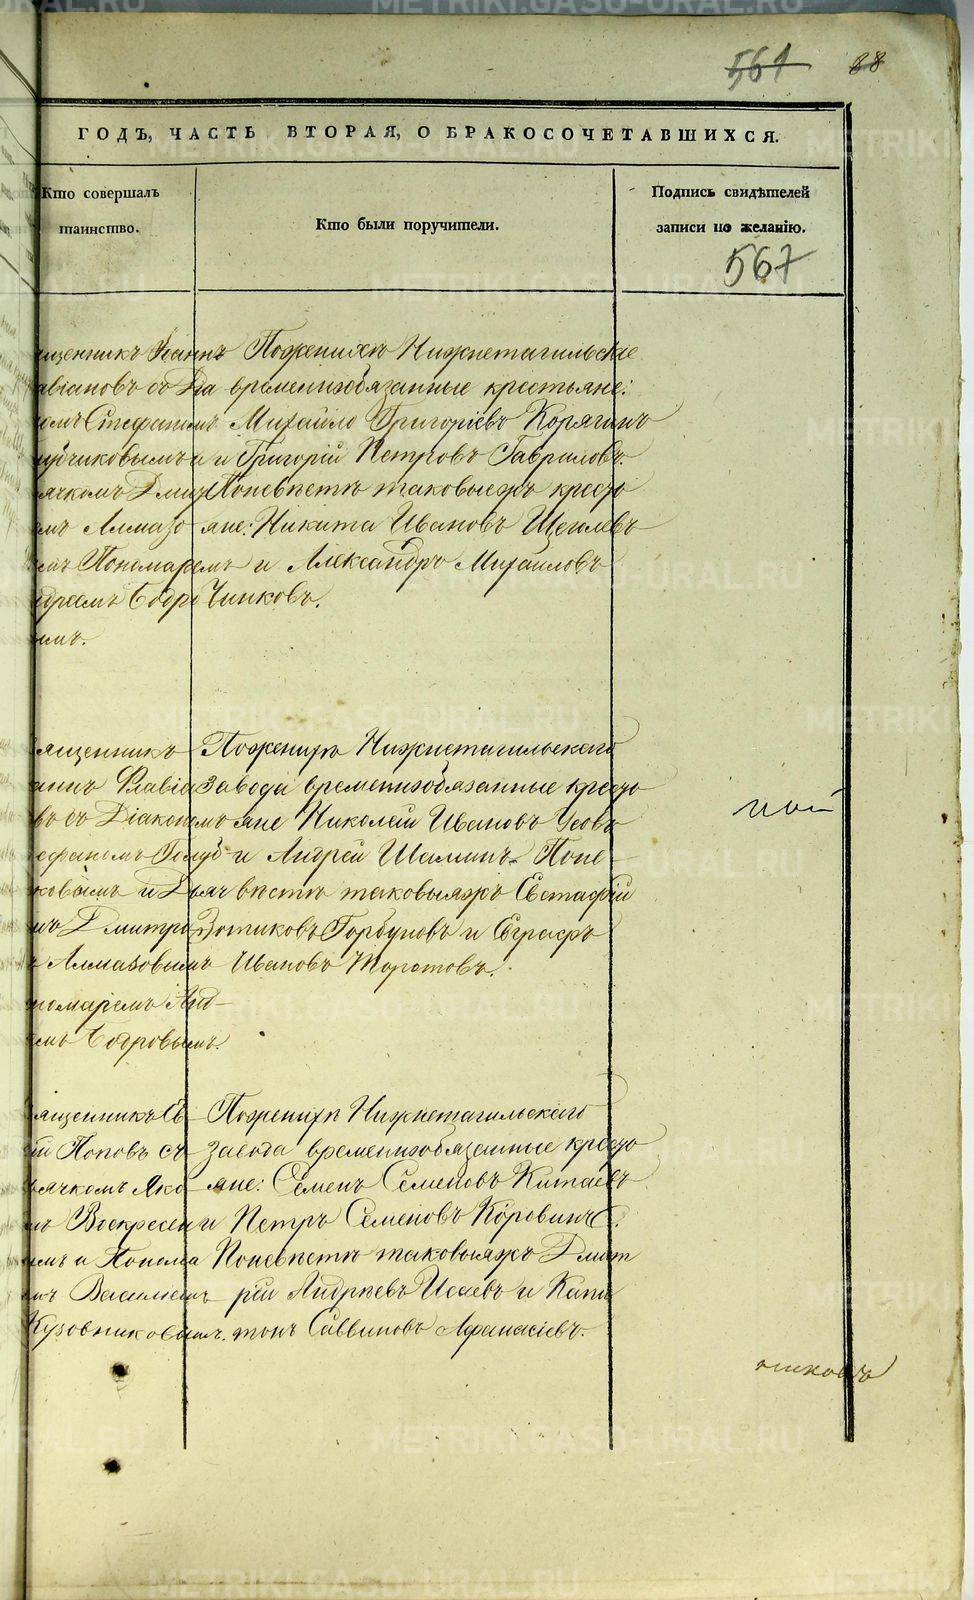 561 88
ГОДЪ, ЧАСТЬ ВТОРАЯ, О БРАКОСОЧЕТАВШИХСЯ.
Кто совершалъ
таинство.
Кто были поручители.
Подпись свидѣтелей
записи по желанію.
567
щенникъ Іоаннъ
авіановъ съ Діа
омъ Стефаномъ
убчиковымъ и
ячкомъ Дмит
емъ Алмазо
Пономаремъ
дреемъ Бобро
ымъ.
По женихѣ Нижнетагильскіе
временнообязанные крестьяне:
Михайло Григорьевъ Корягинъ
и Григорій Петровъ Гавриловъ.
По невѣстѣ таковыежъ кресть
яне: Никита Ивановъ Щеглевъ
и Александръ Михаиловъ
Чинковъ.
ященникъ
аннъ Флавіа
въ съ Діакономъ
ефаномъ Голуб
ковымъ и Дьяч
мъ Дмитріе
Алмазовымъ
номаремъ Анд
емъ Бобровымъ.
По женихѣ Нижнетагильскаго
завода временнообязанные кресть
яне Николай Ивановъ Усовъ
и Андрей Шаминъ. По не
вѣстѣ таковыяжъ Евстафій
Зотиковъ Горбуновъ и Евграфъ
Ивановъ Торотовъ.
ященникъ Ев
ій Поповъ съ
ьячкомъ Яко
мъ Воскресен
имъ и Понома
мъ Василіемъ
Кузовниковымъ.
По женихѣ Нижнетагильскаго
завода временнообязанные кресть
яне: Семенъ Семеновъ Китаевъ
и Петръ Семеновъ Коровинъ.
По невѣстѣ таковыяжъ Дмит
рій Андреевъ Исаевъ и Капи
тонъ Саввиновъ Афанасіевъ.
METRIKI.GASO-URAL.RU